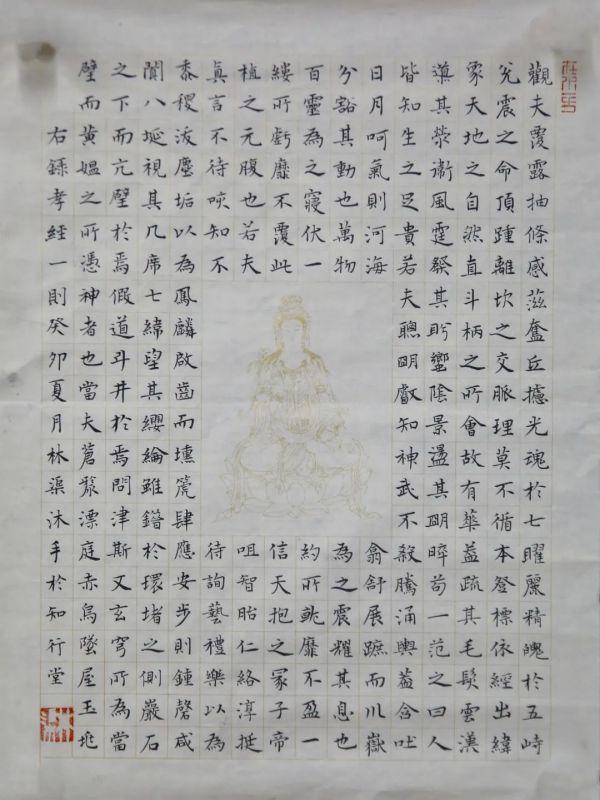 觀夫覆露抽條感茲奮丘攄光魂於七曜麗精魄於五峙
兌震之命頂踵離坎之交脈理莫不循本登標依經出緯
象天地之自然直斗柄之所會故有藥益疏其毛髮雲漢
滇其榮衛風霆發其盻蠁陰景盪其朙晬苟一范之曰人
皆知生之足貴若夫聰朙叡知神武不殺騰涌輿蓋含吐
日月呵氣則河海翕舒展蹠而川嶽
分豁其動也萬物為之震耀其息也
百靈為之寢伏一約所靡不盈一
縷所虧靡不覆此信天抱之冢子帝
植之元腹也若夫咀智胎仁絡淳挺
真言不待咳知不待詢藝禮樂以為
黍稷汲塵垢以為鳳麟啟齒而壎箎肆應安步則鍾磬咸
閬八埏視其几席七緯望其纓綸雖籍於環堵之側巖石
之下而亢壁於焉假道斗井於焉問津斯又玄穹所為當
璧而黃媼之所憑神者也當夫蒼漂庭赤烏墜屋玉兆
右錄孝經一則癸卯夏月林渠沐手於知行堂